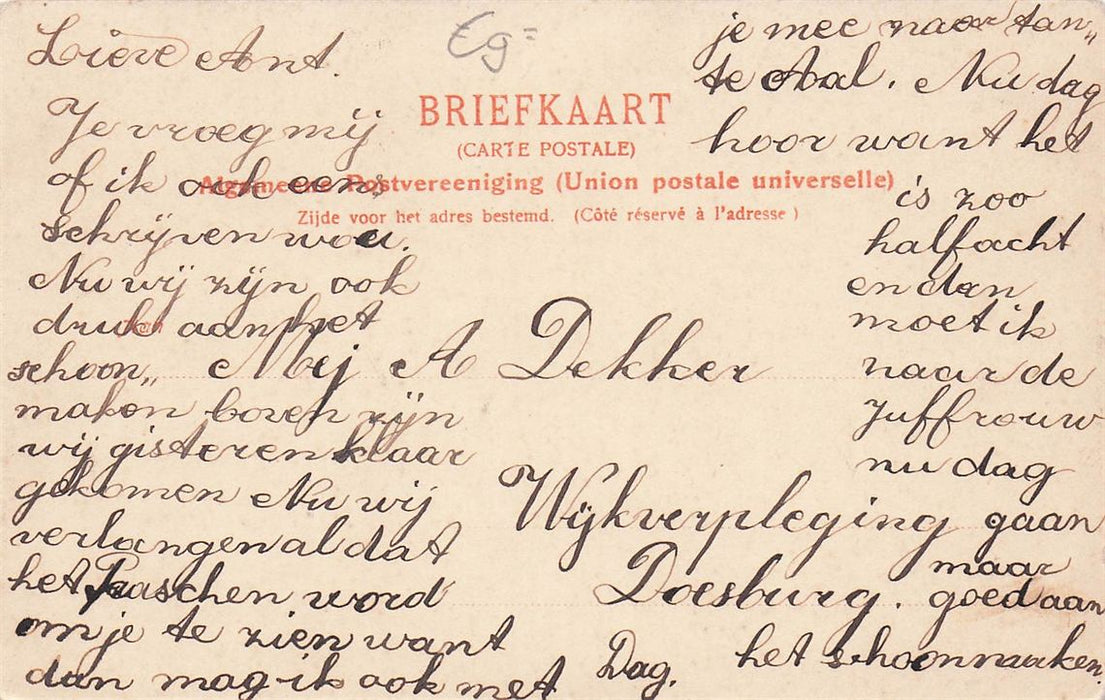 Lieve Ant.
Je vroeg mij
of ik ook eens
schrijven wou.
Nu wij zijn ook
druk aan het
schoon„
maken boven zijn
wij gisteren klaar
gekomen Nu wij
verlangen al dat
het Paaschen word
om je te zien want
dan mag ik ook met
je mee naar tan„
te Aal. Nu dag
hoor want het
is zoo
half acht
en dan
moet ik
naar de
Juffrouw
nu dag
gaan
maar
goed aan
het schoonmaken.
Dag.
Eg=
BRIEFKAART
(CARTE POSTALE)
Algemeene Postvereeniging (Union postale universelle)
Zijde voor het adres bestemd. (Côté réservé à l'adresse)
Mej A Dekker
Wijkverpleging
Doesburg.